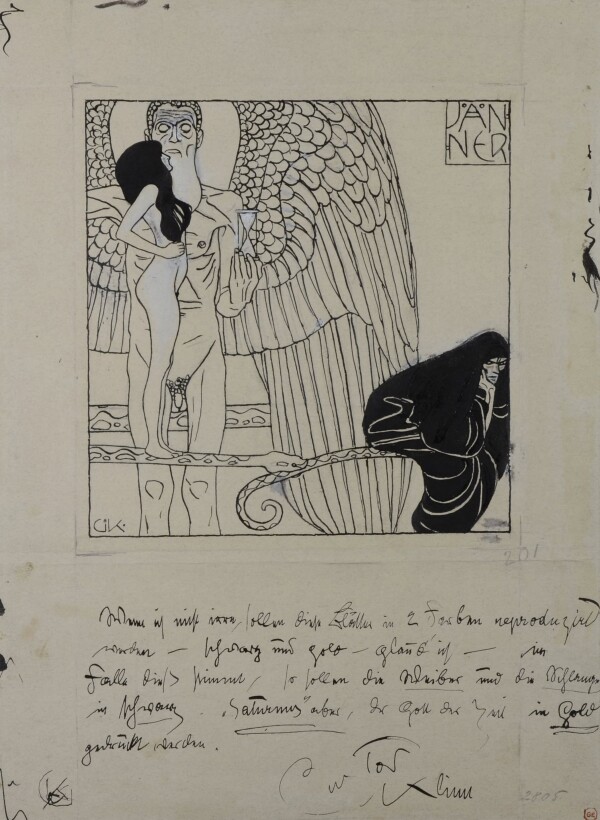 JÄN
NER
GK.
201
Wenn ich nicht irre, sollen diese Blätter in 2 Farben reproduzirt
werden – schwarz und gold – glaub ich – im
Falle dieß stimmt, so sollen die Weiber und die Schlange
in schwarz. „Saturnus" aber, der Gott der Zeit in Gold
gedruckt werden.
Klimt
2805